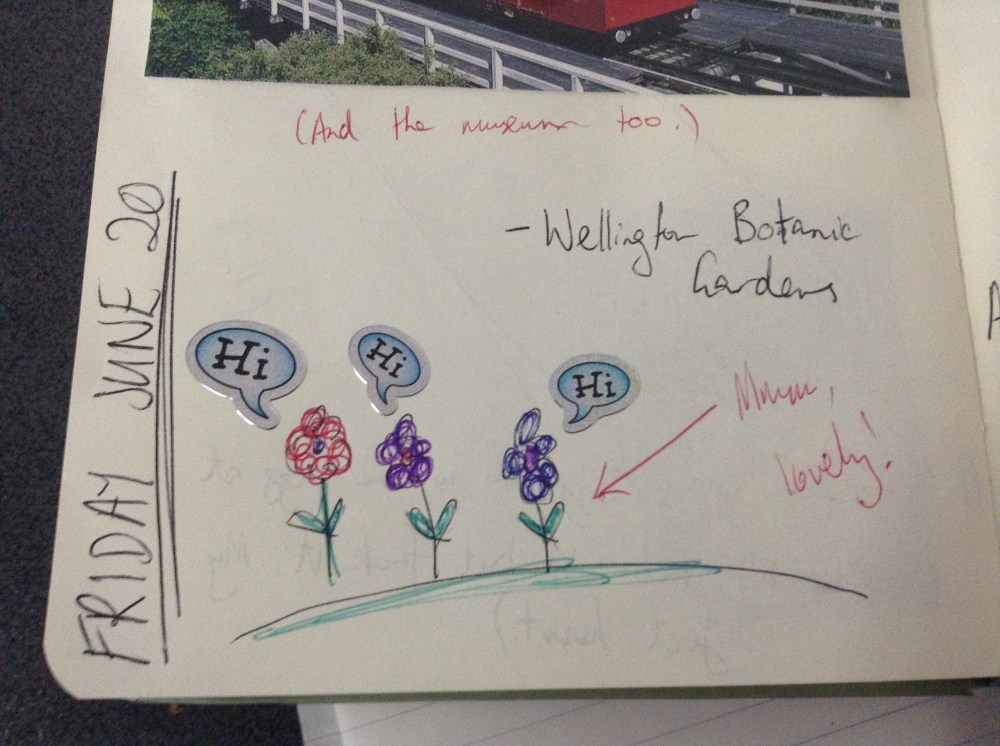 (And the museum too.)
FRIDAY JUNE 20
- Wellington Botanic
Gardens
Hi
Hi
Hi
Mmmm,
lovely!